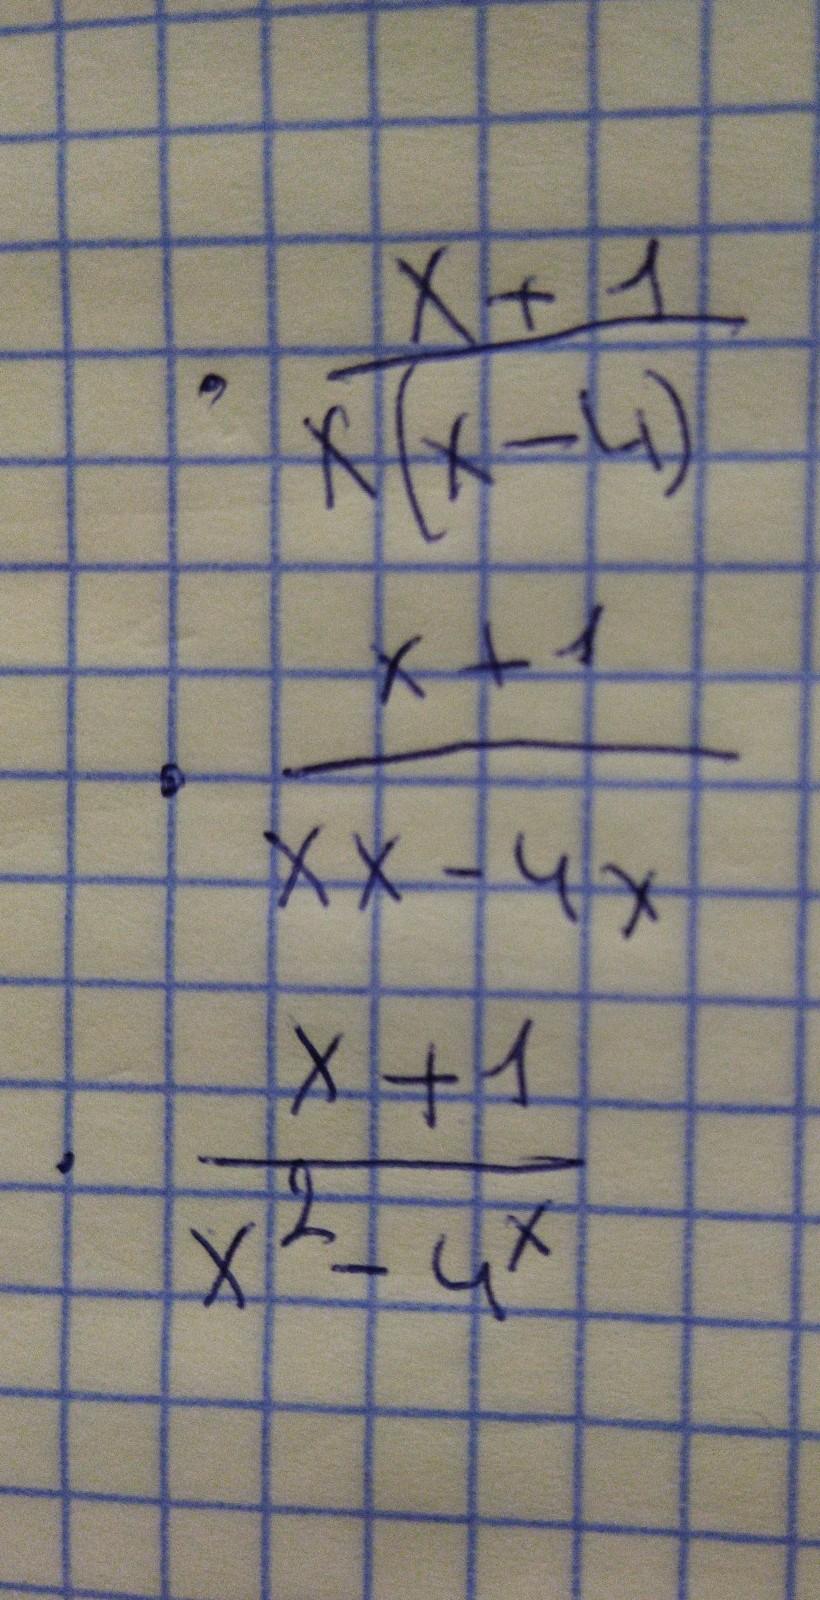 . x + 1
x(x - 4)
. x + 1
xx - 4x
. x + 1
x² - 4ˣ